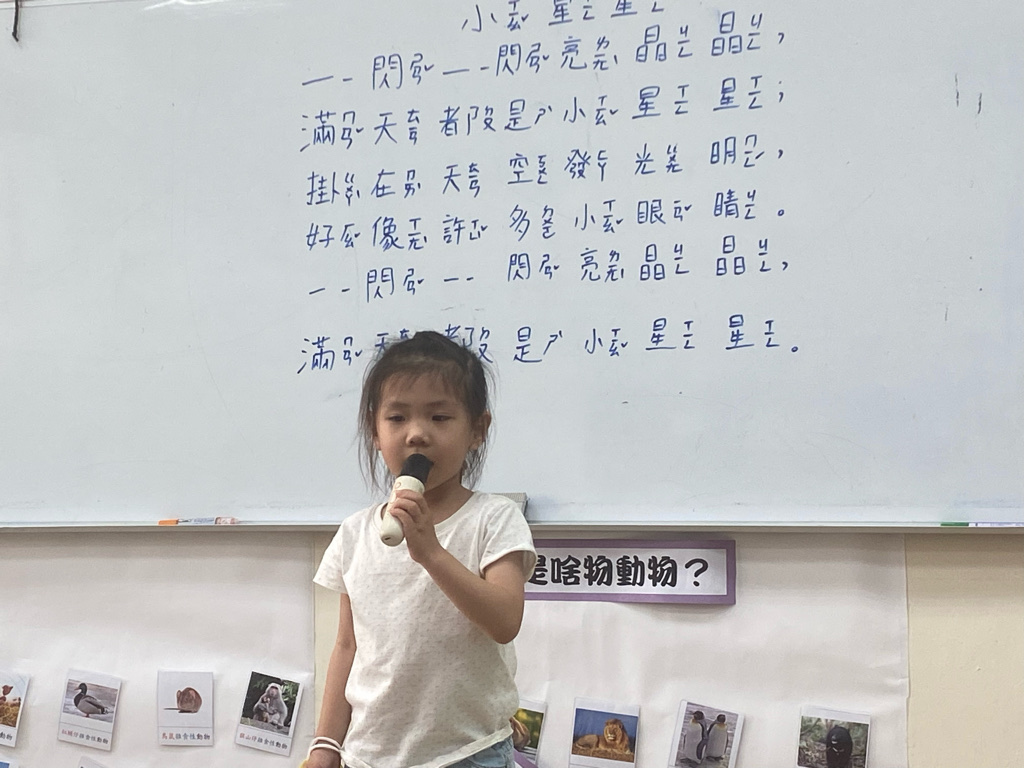 小ㄒㄧㄠˇ 星ㄒㄧㄥ 星ㄒㄧㄥ
一ㄧ 閃ㄕㄢˇ 一ㄧ 閃ㄕㄢˇ 亮ㄌㄧㄤˋ 晶ㄐㄧㄥ 晶ㄐㄧㄥ，
滿ㄇㄢˇ 天ㄊㄧㄢ 都ㄉㄡ 是ㄕˋ 小ㄒㄧㄠˇ 星ㄒㄧㄥ 星ㄒㄧㄥ；
掛ㄍㄨㄚˋ 在ㄗㄞˋ 天ㄊㄧㄢ 空ㄎㄨㄥ 發ㄈㄚ 光ㄍㄨㄤ 明ㄇㄧㄥˊ，
好ㄏㄠˇ 像ㄒㄧㄤˋ 許ㄒㄩˇ 多ㄉㄨㄛ 小ㄒㄧㄠˇ 眼ㄧㄢˇ 睛ㄐㄧㄥ。
一ㄧ 閃ㄕㄢˇ 一ㄧ 閃ㄕㄢˇ 亮ㄌㄧㄤˋ 晶ㄐㄧㄥ 晶ㄐㄧㄥ，
滿ㄇㄢˇ 天ㄊㄧㄢ 都ㄉㄡ 是ㄕˋ 小ㄒㄧㄠˇ 星ㄒㄧㄥ 星ㄒㄧㄥ。
是啥物動物？